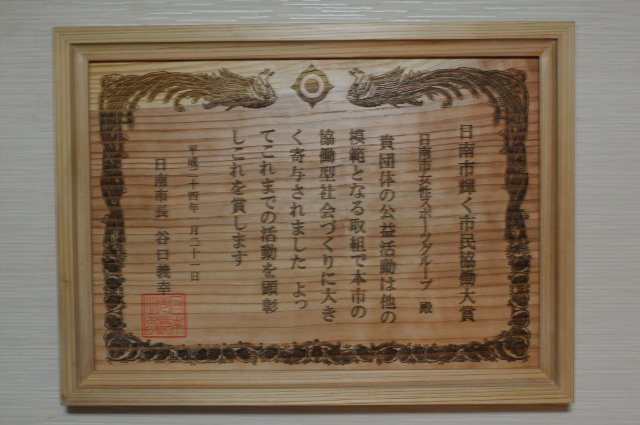 日南市輝く市民協働大賞
日南市女性スポーツグループ 殿
貴団体の公益活動は他の
模範となる取組で本市の
協働型社会づくりに大き
く寄与されました よっ
てこれまでの活動を顕彰
しこれを賞します
平成二十四年一月二十一日
日南市長 谷口義幸